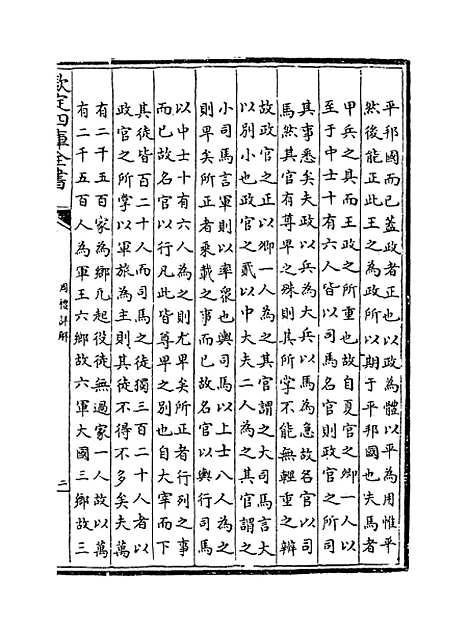 平邦國而已蓋政者正也以政為體以平為用惟平
然後能正此王之為政所以期于平邦國也夫馬者
甲兵之具而王政之所重也故自夏官之卿一人以
至于中士十有六人皆以司馬名官則政官之所司
其事悉矣夫政以兵為大兵以馬為急故名官以司
馬然其官有尊卑之殊則其所掌不能無輕重之辨
故政官之正以卿一人為之其官謂之大司馬言大
以別小也政官之貳以中大夫二人為之其官謂之
小司馬言軍則以率衆也輿司馬以上士八人為之
則卑矣所正者乘載之事而已故名官以輿行司馬
以中士十有六人為之則尤卑矣所正者行列之事
而已故名官以行凡此皆尊卑之別也自大宰而下
其徒皆百二十人而司馬之徒獨三百二十人者以
政官之所掌以軍旅為主則其徒不得不多矣夫萬
有二千五百家為鄉凡起徒役無過家一人故以萬
有二千五百人為軍王六鄉故六軍大國三鄉故三
欽定四庫全書
周禮詳解
二